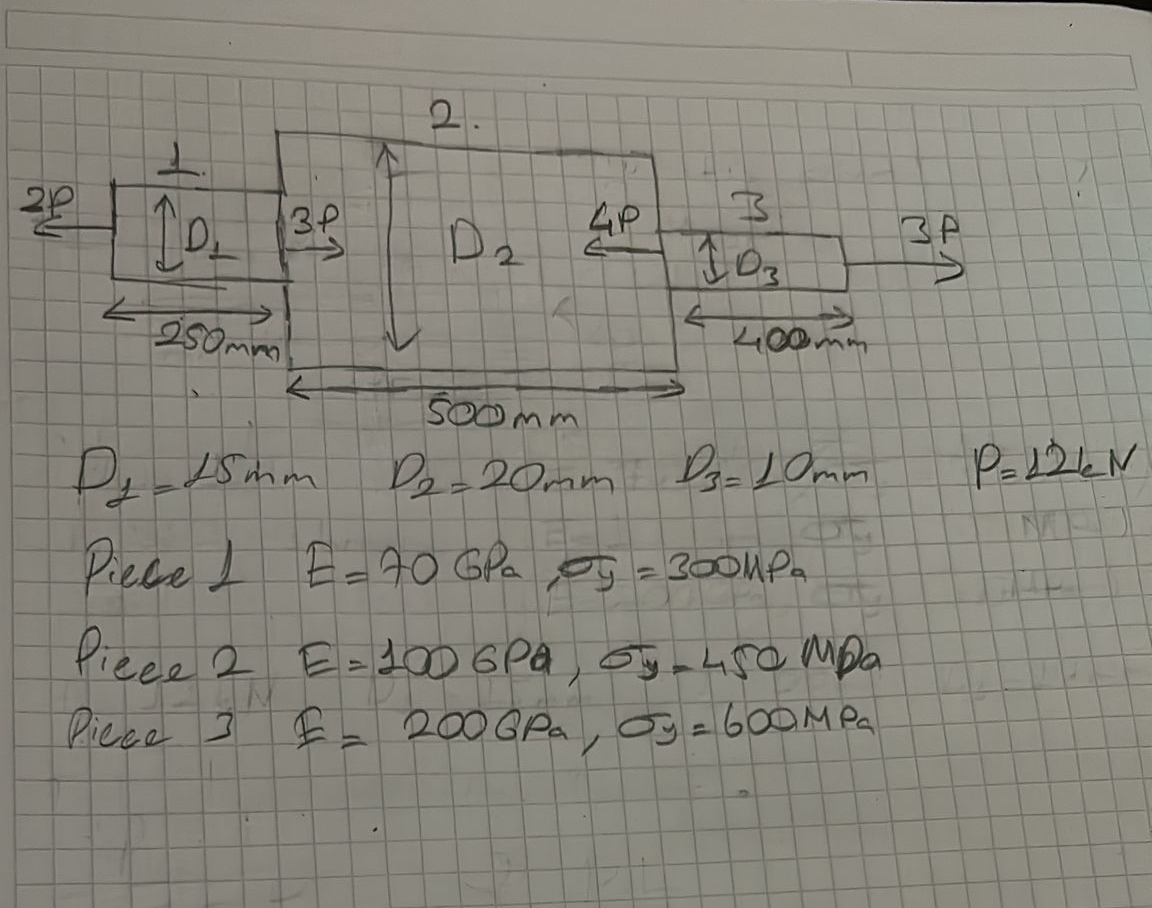 2.
1.
2P
D1
3P
D2
4P
3
D3
3P
250mm
400mm
500mm
D1=15mm D2=20mm D3=10mm P=12kN
Piece 1 E=70 GPa, σy=300MPa
Piece 2 E=100GPa, σy=450 MPa
Piece 3 E= 200GPa, σy=600MPa